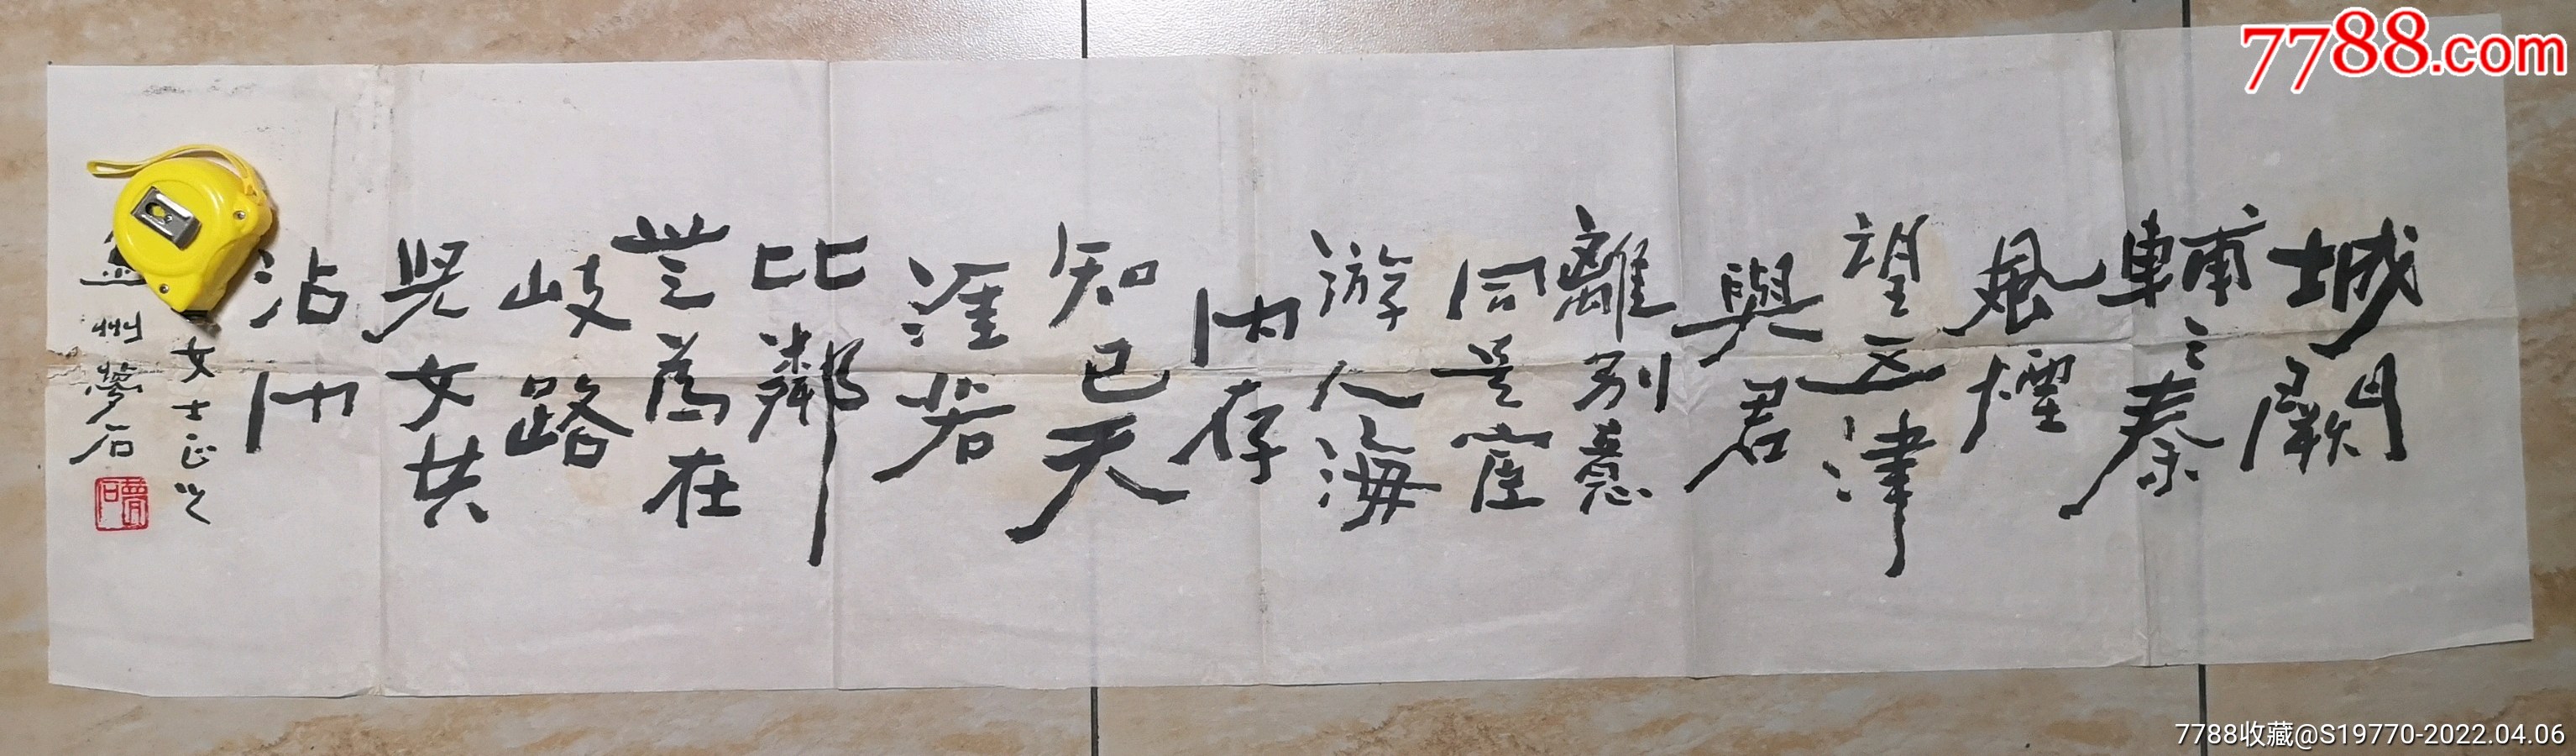 城闕
輔三秦
風煙
望五津
與君
離別意
同是宦
游人海
内存
知己天
涯若
比鄰
無為在
岐路
兒女共
沾巾
女士正之
州夢石
夢石
7788.com
7788收藏@S19770-2022.04.06